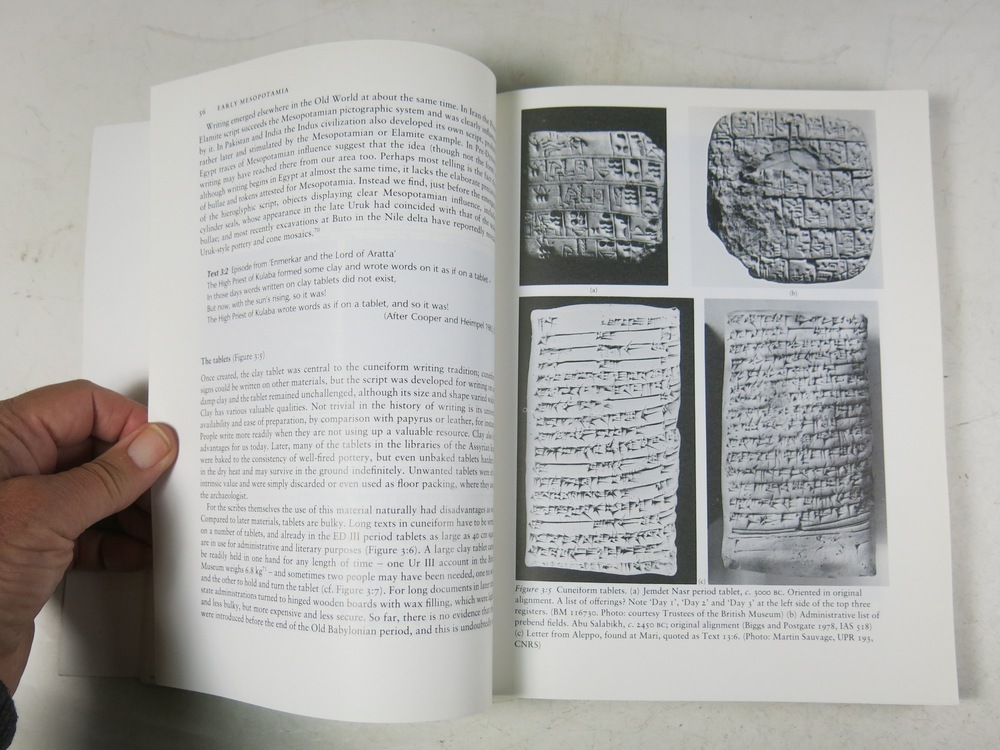 56 EARLY MESOPOTAMIA
Writing emerged elsewhere in the Old World at about the same time. In Iran the
Elamite script succeeds the Mesopotamian pictographic system and was clearly
by it. In Pakistan and India the Indus civilization also developed its own script,
rather later and stimulated by the Mesopotamian or Elamite example. In
Egypt traces of Mesopotamian influence suggest that the idea (though not the
writing may have reached there from our area too. Perhaps most telling is the
although writing begins in Egypt at almost the same time, it lacks the elaborate
of bullae and tokens attested for Mesopotamia. Instead we find, just before the
of the hieroglyphic script, objects displaying clear Mesopotamian influence,
cylinder seals, whose appearance in the late Uruk had coincided with that of the
bullae; and most recently excavations at Buto in the Nile delta have reportedly
Uruk-style pottery and cone mosaics.⁷⁰
Text 3:2 Episode from 'Enmerkar and the Lord of Aratta'
The High Priest of Kulaba formed some clay and wrote words on it as if on a tablet –
In those days words written on clay tablets did not exist,
But now, with the sun's rising, so it was!
The High Priest of Kulaba wrote words as if on a tablet, and so it was!
(After Cooper and Heimpel
The tablets (Figure 3:5)
Once created, the clay tablet was central to the cuneiform writing tradition;
signs could be written on other materials, but the script was developed for writing
damp clay and the tablet remained unchallenged, although its size and shape varied
Clay has various valuable qualities. Not trivial in the history of writing is its
availability and ease of preparation, by comparison with papyrus or leather, for
People write more readily when they are not using up a valuable resource. Clay
advantages for us today. Later, many of the tablets in the libraries of the Assyrian
were baked to the consistency of well-fired pottery, but even unbaked tablets
in the dry heat and may survive in the ground indefinitely. Unwanted tablets were
intrinsic value and were simply discarded or even used as floor packing, where they
the archaeologist.
For the scribes themselves the use of this material naturally had disadvantages
Compared to later materials, tablets are bulky. Long texts in cuneiform have to be
on a number of tablets, and already in the ED III period tablets as large as 40 cm
are in use for administrative and literary purposes (Figure 3:6). A large clay tablet
be readily held in one hand for any length of time – one Ur III account in the
Museum weighs 6.8 kg⁷¹ – and sometimes two people may have been needed, one
and the other to hold and turn the tablet (cf. Figure 3:7). For long documents in later
state administrations turned to hinged wooden boards with wax filling, which were
and less bulky, but more expensive and less secure. So far, there is no evidence that
were introduced before the end of the Old Babylonian period, and this is undoubtedly
(a)
(b)
(c)
Figure 3:5 Cuneiform tablets. (a) Jemdet Nasr period tablet, c. 3000 BC. Oriented in original
alignment. A list of offerings? Note 'Day 1', 'Day 2' and 'Day 3' at the left side of the top three
registers. (BM 116730. Photo: courtesy Trustees of the British Museum) (b) Administrative list of
prebend fields. Abu Salabikh, c. 2450 BC; original alignment (Biggs and Postgate 1978, IAS 518)
(c) Letter from Aleppo, found at Mari, quoted as Text 13:6. (Photo: Martin Sauvage, UPR 193,
CNRS)